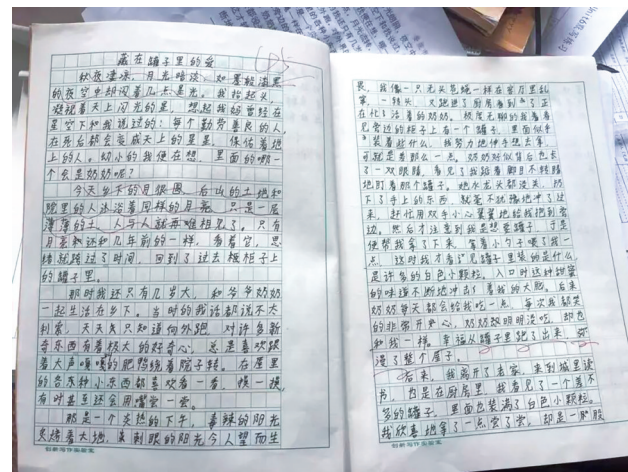 藏在罐子里的爱
秋夜凄凉,月光暗淡,如墨般漆黑
的夜空中却闪着几点星光。我抬起头,
凝视着天上闪光的星,想起我奶曾经在
星空下和我说过的:每个勤劳善良的人,
在死后都会变成天上的星星,保佑着地
上的人。幼小的我便在想,里面的哪一
个会是奶奶呢?
今天乡下的月很圆,后山的土地和
院里的人沐浴着同样的月亮,只是一层
薄薄的土,人与人就再难相见了。只有
月亮还和几年前的一样,看着它,思
绪就跨过了时间,回到了过去橱柜子上
的罐子里。
那时我还只有几岁大,和爷爷奶奶
一起生活在乡下。当时的我话都说不太
利索,天天只知道向外跑,对许多新
奇东西有着极大的好奇心,总是喜欢跟
着大声嚷嚷的肥鸭绕着院子转。在屋里
的各种小东西都喜欢看一看,摸一摸,
有时甚至还会用嘴尝一尝。
那是一个炎热的下午,毒辣的阳光
炙烤着大地,刺眼的阳光令人望而生
畏,我像一只无头苍蝇一样在客厅里乱
窜,一转头,又跑进了厨房看到了正
在忙活着的奶奶。极度无聊的我看着
见旁边的柜子上有一个罐子,里面似乎
装着些什么,我努力地伸手想去拿,
可就是差那么一点。奶奶好似背后也长
了一双眼睛,看见了我踮着脚目不转睛
地盯着那个罐子。她水龙头都没关,扔
下了手上的东西,毫不犹豫地冲了过
来,赶忙用双手小心翼翼地给我抱到旁
边。然后才注意到我是想拿罐子,于是
便帮我拿了下来,拿着小勺子喂了我一
点,这时我才看见罐子里装的是什么,
是许多的白色小颗粒。入口时这种甜蜜
的味道不断地冲击着我的大脑。后来
奶奶每天都会给我吃一点,每次我都笑
的非常开心,奶奶明明没吃,却也
和我一样,幸福从罐子里跑了出来,弥
漫了整个屋子。
后来,我离开了老家,来到城里读
书,也是在厨房里,我看见了一个差不
多的罐子,里面也装满了白色小颗粒。
我欣喜地拿了一点尝了尝,却是一股股
创新写作实验室
创新写作实验室